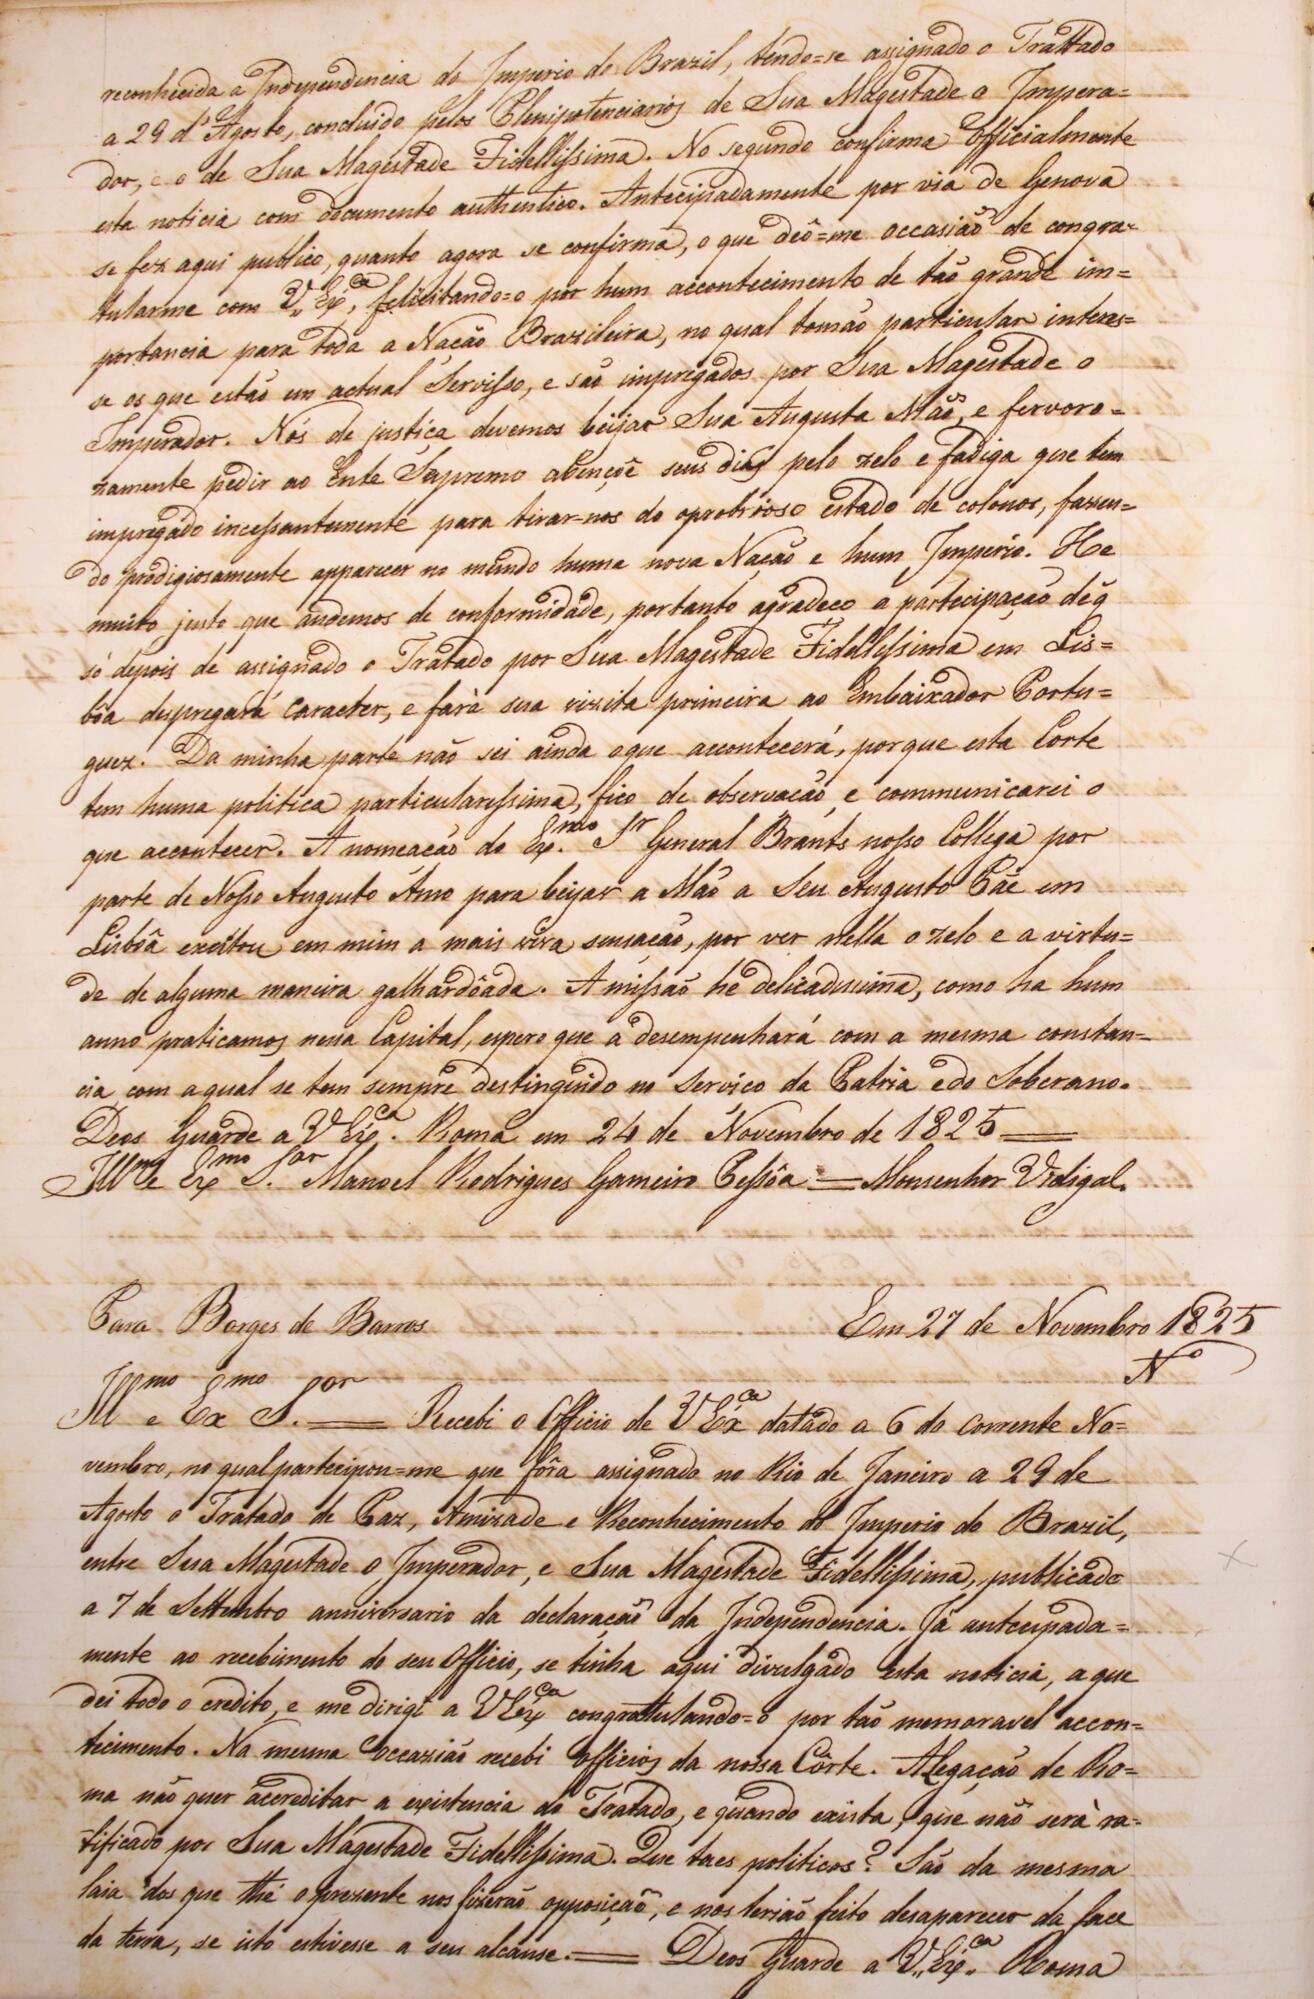 reconhecida a Independencia do Imperio do Brazil, tendo=se assignado o Trattado
a 29 d'Agosto, concluido pelos Plenipotenciarios de Sua Magestade o Impera=
dor, e o de Sua Magestade Fidellissima. No segundo confirma officialmente
esta noticia com documento authentico. Antecipadamente por via de Genova
se fez aqui publico, quanto agora se confirma, o que deô=me occasião de congra=
tularme com V. Exca, felicitando=o por hum accontecimento de tão grande im=
portancia para toda a Nacão Brazileira, no qual tomão particular interes=
se os que estão em actual Servisso, e são impregados por Sua Magestade o
Imperador. Nós de justiça devemos beijar Sua Augusta Mão, e fervoro=
zamente pedir ao Ente Supremo abençõe seus dias pelo zelo e fadiga que tem
impregado incessantemente para tirar-nos do oprobrioso estado de colonos, fazen=
do prodigiosamente apparecer no mundo huma nova Nação e hum Imperio. He
muito justo que andemos de conformidade, portanto agradeco a partecipação de q̃
só depois de assignado o Tratado por Sua Magestade Fidellissima em Lis=
bôa despregará caracter, e fará sua vizita primeira ao Embaixador Portu=
guez. Da minha parte não sei ainda oque accontecerá, porque esta Corte
tem huma politica particularissima, fico de observacão, e communicarei o
que accontecer. A nomeacão do Exmo. Sr General Brants nosso Collega por
parte de Nosso Augusto Amo para beijar a Mão a Seu Augusto Páe em
Lisbôa excitou em mim a mais viva sensacão, por ver nella o zelo e a virtu=
de de alguma maneira galhardôada. A missão hé delicadissima, como ha hum
anno praticamos nessa Capital, espero que a desempenhará com a mesma constan=
cia com aqual se tem sempre destinguido no Servico da Patria edo Soberano.
Deos Guarde a V Exca. Roma em 24 de Novembro de 1825
Illmo e Exmo Sor. Manoel Rodrigues Gameiro Pessôa = Monsenhor Vidigal.
Para Borges de Barros Em 27 de Novembro 1825
No
Illmo e Exmo Sor. = Recebi o Officio de V Exca datado a 6 do corrente No=
vembro, no qual partecipou=me que fôra assignado no Rio de Janeiro a 29 de
Agosto o Tratado de Paz, Amizade e Reconhecimento do Imperio do Brazil,
entre Sua Magestade o Imperador, e Sua Magestade Fidellissima, publicado
a 7 de Settembro anniversario da declaração da Independencia. Já antecipada=
mente ao recebimento do seu Officio, se tinha aqui divulgado esta noticia, a que
dei todo o credito, e me dirigi a V Exca congratulando=o por tão memoravel accon=
tecimento. Na mesma occazião recebi officios da nossa Côrte. A Legação de Ro=
ma não quer acreditar a existencia do Tratado, e quando exista, que não será ra=
tificado por Sua Magestade Fidellissima. Que taes politicos? São da mesma
laia dos que thé o prezente nos fizerão opposição, e nos terião feito desaparecer da face
da terra, se isto estivesse a seu alcanse. = Deos Guarde a V. Exca. Roma